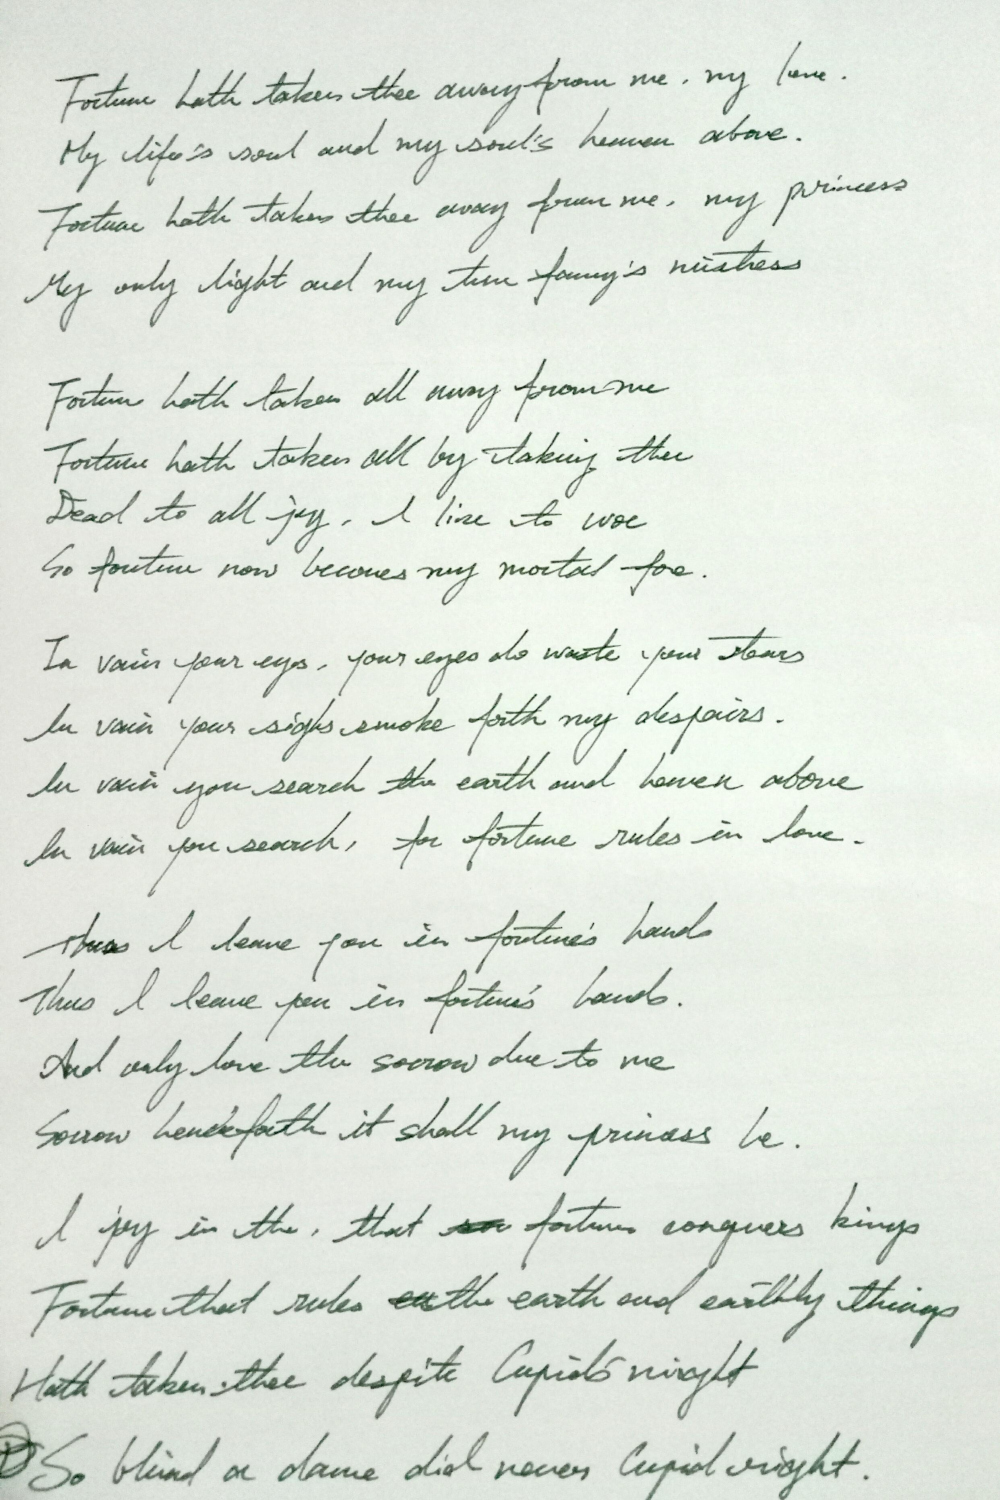 Fortune hath taken thee away from me, my love.
My life's soul and my soul's heaven above.
Fortune hath taken thee away from me, my princess
My only light and my true fancy's mistress
Fortune hath taken all away from me
Fortune hath taken all by taking thee
Dead to all joy, I live to woe
So fortune now becomes my mortal foe.
In vain your eyes, your eyes do waste your tears
In vain your sighs smoke forth my despairs.
In vain you search the earth and heaven above
In vain you search, for fortune rules in love.
Thus I leave you in fortune's hands
Thus I leave you in fortune's hands.
And only love the sorrow due to me
Sorrow henceforth it shall my princess be.
I joy in the, that fortune conquers kings
Fortune that rules the earth and earthly things
Hath taken thee despite Cupid's might
So blind a dame did never Cupid right.